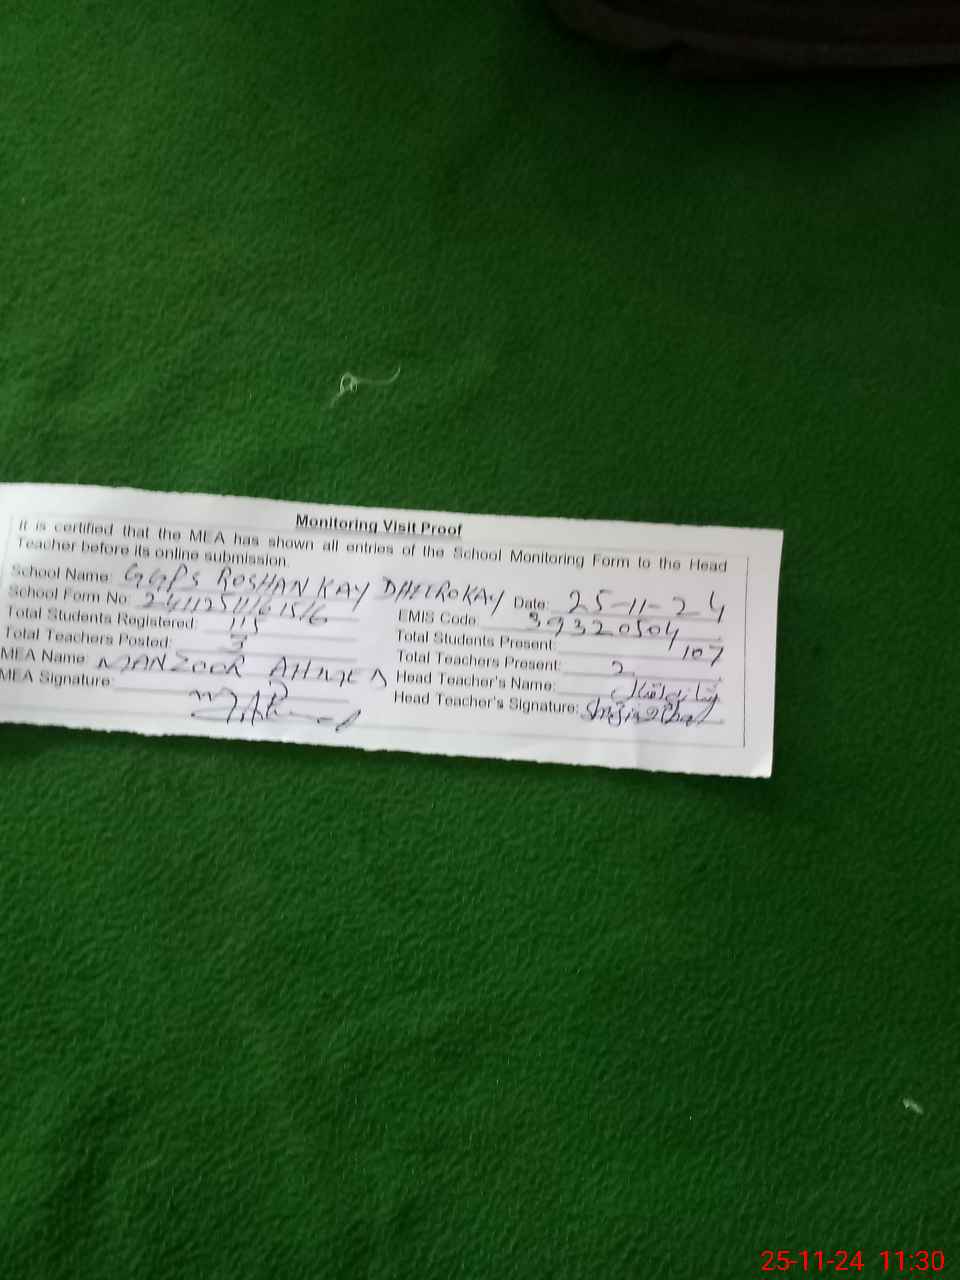 Monitoring Visit Proof
It is certified that the MEA has shown all entries of the School Monitoring Form to the Head
Teacher before its online submission.
School Name: GGPS ROSHAN KAY DHEEROKAY Date: 25-11-24
School Form No: EMIS Code: 39320504
Total Students Registered: 115 Total Students Present: 107
Total Teachers Posted: 3 Total Teachers Present: 2
MEA Name: MANZOOR AHMED Head Teacher's Name:
MEA Signature: Head Teacher's Signature:
25-11-24 11:30